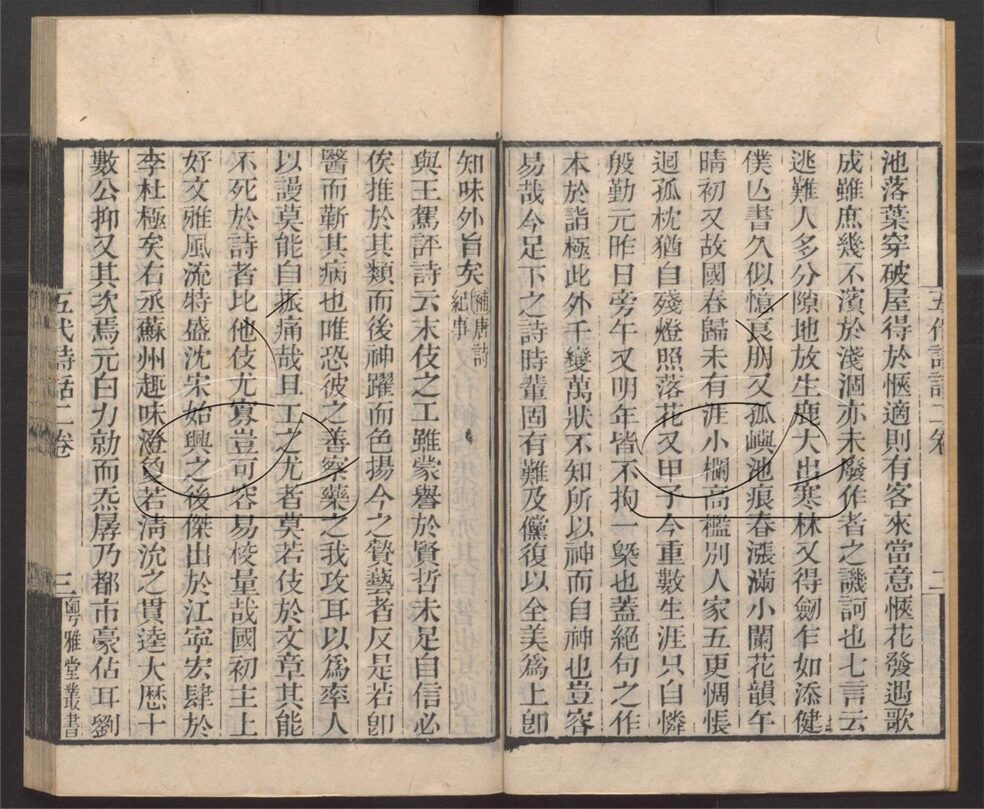 池落葉穿破屋得於愜適則有客來當意愜花發遇歌
成雖庶幾不濱於淺涸亦未廢作者之譏訶也七言云
逃難人多分隙地放生鹿大出寒林又得劒乍如添健
僕亾書久似憶良朋又孤嶼池痕春漲滿小闌花韻午
晴初又故國春歸未有涯小欄高檻別人家五更惆悵
迴孤枕猶自殘燈照落花又甲子今重數生涯只自憐
殷勤元昨日旁午又明年皆不拘一槩也蓋絕句之作
本於詣極此外千變萬狀不知所以神而自神也豈容
易哉今足下之詩時輩固有難及儻復以全美爲上卽
知味外旨矣補唐詩紀事
與王駕評詩云末伎之工雖蒙譽於賢哲未足自信必
俟推於其類而後神躍而色揚今之贄藝者反是若卽
醫而靳其病也唯恐彼之善察藥之我攻耳以爲率人
以謾莫能自振痛哉且工之尤者莫若伎於文章其能
不死於詩者比他伎尤寡豈可容易棱量哉國初主上
好文雅風流特盛沈宋始興之後傑出於江寧宏肆於
李杜極矣右丞蘇州趣味澄敻若淸沇之貫逵大厯十
數公抑又其次焉元白力勍而炁孱乃都市豪估耳劉
五代詩話二卷
三
粵雅堂叢書